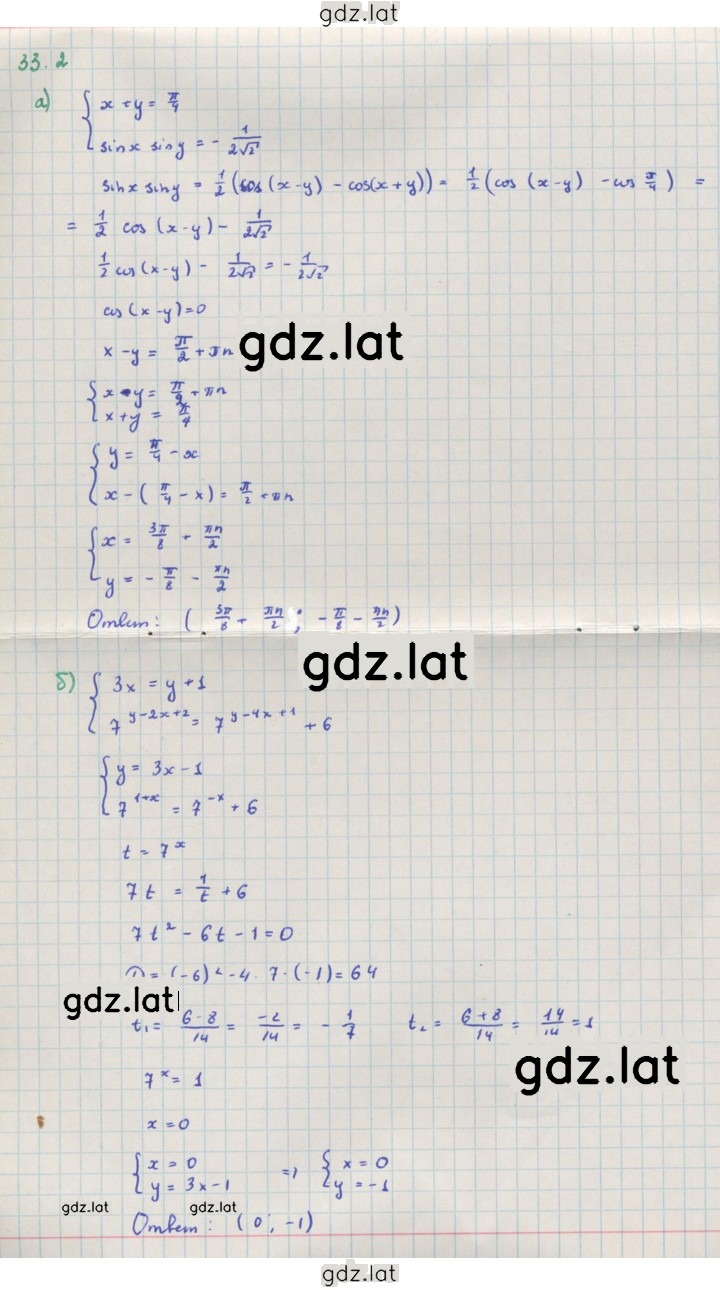 gdz.lat
33.2
а) { x + y = π/4
sinx siny = - 1/(2√2)
sinx siny = 1/2 (cos (x-y) - cos(x+y)) = 1/2 (cos (x-y) - cos π/4) =
= 1/2 cos (x-y) - 1/(2√2)
1/2 cos(x-y) - 1/(2√2) = - 1/(2√2)
cos(x-y)=0
x-y = π/2 + πn
gdz.lat
{ x-y = π/2 + πn
x+y = π/4
{ y = π/4 - x
x - (π/4 - x) = π/2 + πn
{ x = 3π/8 + πn/2
y = - π/8 - πn/2
Ответ: (3π/8 + πn/2; -π/8 - πn/2)
gdz.lat
б) { 3x = y+1
7^(y-2x+2) = 7^(y-4x+1) + 6
{ y = 3x-1
7^(1+x) = 7^(-x) + 6
t = 7^x
7t = 1/t + 6
7t² - 6t - 1 = 0
D = (-6)² - 4 · 7 · (-1) = 64
gdz.lat
t₁ = (6-8)/14 = -2/14 = - 1/7 t₂ = (6+8)/14 = 14/14 = 1
gdz.lat
7^x = 1
x = 0
{ x = 0
y = 3x-1 => { x = 0
y = -1
gdz.lat gdz.lat
Ответ: (0; -1)
gdz.lat